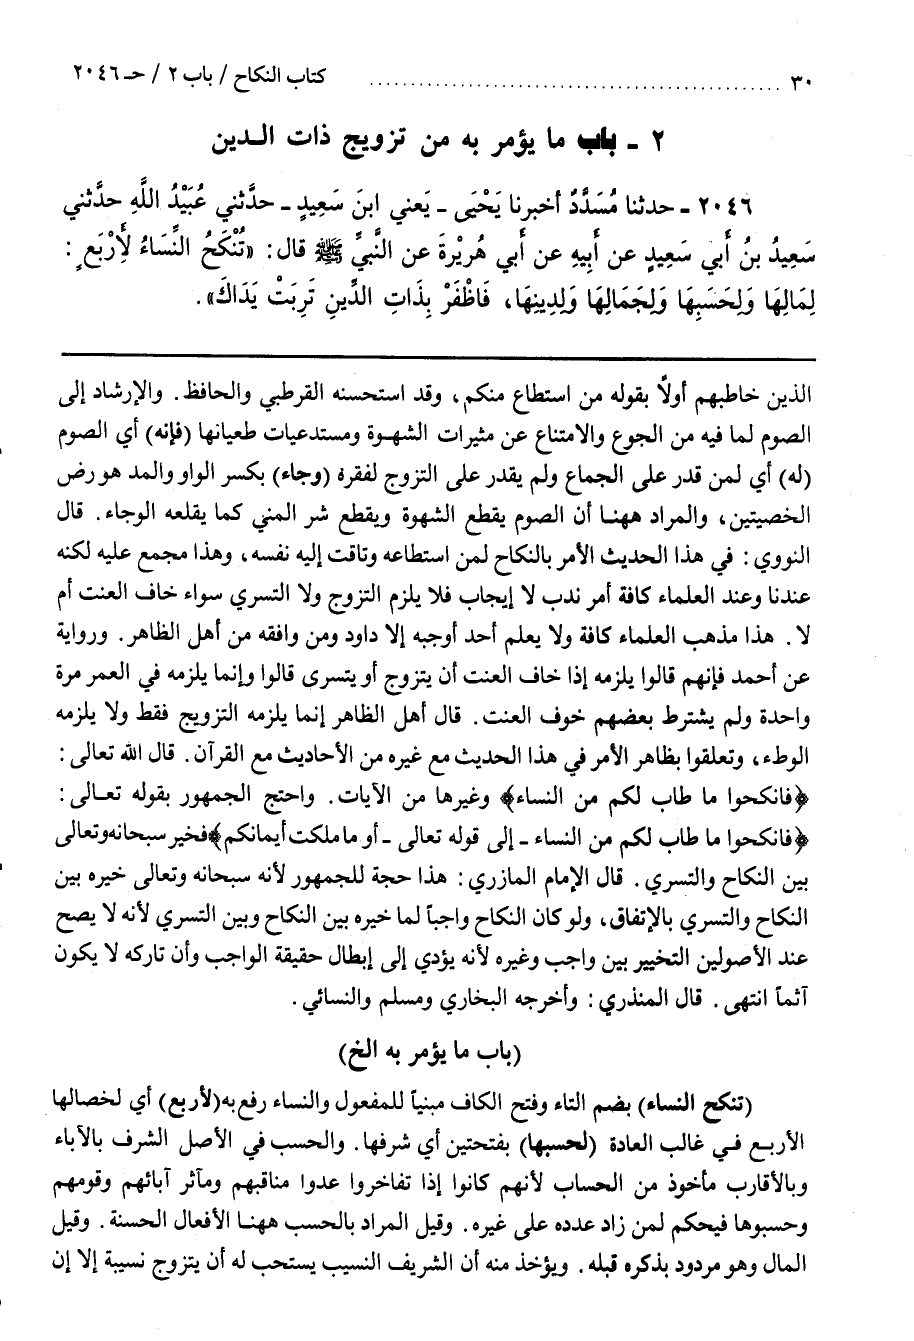 ٣٠ ........................................ كتاب النكاح / باب ٢ / حـ ٢٠٤٦
٢ - باب ما يؤمر به من تزويج ذات الدين
٢٠٤٦ - حدثنا مُسَدَّدٌ أخبرنا يَحْيَى - يَعني ابنَ سَعِيدٍ - حدَّثني عُبَيْدُ اللَّهِ حدَّثني
سَعِيدُ بنُ أَبي سَعِيدٍ عن أَبِيهِ عن أبي هُرَيْرةَ عن النَّبيِّ ﷺ قال: «تُنْكَحُ النِّسَاءُ لِأَرْبَعٍ:
لِمَالِهَا وَلِحَسَبِهَا وَلِجَمَالِهَا وَلِدِينِهَا، فَاظْفَرْ بِذَاتِ الدِّينِ تَرِبَتْ يَدَاكَ».
الذين خاطبهم أولاً بقوله من استطاع منكم، وقد استحسنه القرطبي والحافظ. والإرشاد إلى
الصوم لما فيه من الجوع والامتناع عن مثيرات الشهوة ومستدعيات طعيانها (فإنه) أي الصوم
(له) أي لمن قدر على الجماع ولم يقدر على التزوج لفقره (وجاء) بكسر الواو والمد هو رض
الخصيتين، والمراد ههنا أن الصوم يقطع الشهوة ويقطع شر المني كما يقلعه الوجاء. قال
النووي: في هذا الحديث الأمر بالنكاح لمن استطاعه وتاقت إليه نفسه، وهذا مجمع عليه لكنه
عندنا وعند العلماء كافة أمر ندب لا إيجاب فلا يلزم التزوج ولا التسري سواء خاف العنت أم
لا. هذا مذهب العلماء كافة ولا يعلم أحد أوجبه إلا داود ومن وافقه من أهل الظاهر. ورواية
عن أحمد فإنهم قالوا يلزمه إذا خاف العنت أن يتزوج أو يتسرى قالوا وإنما يلزمه في العمر مرة
واحدة ولم يشترط بعضهم خوف العنت. قال أهل الظاهر إنما يلزمه التزويج فقط ولا يلزمه
الوطء، وتعلقوا بظاهر الأمر في هذا الحديث مع غيره من الأحاديث مع القرآن. قال الله تعالى:
﴿فانكحوا ما طاب لكم من النساء﴾ وغيرها من الآيات. واحتج الجمهور بقوله تعالى:
﴿فانكحوا ما طاب لكم من النساء - إلى قوله تعالى - أو ما ملكت أيمانكم﴾ فخير سبحانه وتعالى
بين النكاح والتسري. قال الإمام المازري: هذا حجة للجمهور لأنه سبحانه وتعالى خيره بين
النكاح والتسري بالإتفاق، ولو كان النكاح واجباً لما خيره بين النكاح وبين التسري لأنه لا يصح
عند الأصولين التخيير بين واجب وغيره لأنه يؤدي إلى إبطال حقيقة الواجب وأن تاركه لا يكون
آثماً انتهى. قال المنذري: وأخرجه البخاري ومسلم والنسائي.
(باب ما يؤمر به الخ)
(تنكح النساء) بضم التاء وفتح الكاف مبنياً للمفعول والنساء رفع به (لأربع) أي لخصالها
الأربع في غالب العادة (لحسبها) بفتحتين أي شرفها. والحسب في الأصل الشرف بالآباء
وبالأقارب مأخوذ من الحساب لأنهم كانوا إذا تفاخروا عدوا مناقبهم ومآثر آبائهم وقومهم
وحسبوها فيحكم لمن زاد عدده على غيره. وقيل المراد بالحسب ههنا الأفعال الحسنة. وقيل
المال وهو مردود بذكره قبله. ويؤخذ منه أن الشريف النسيب يستحب له أن يتزوج نسيبة إلا إن